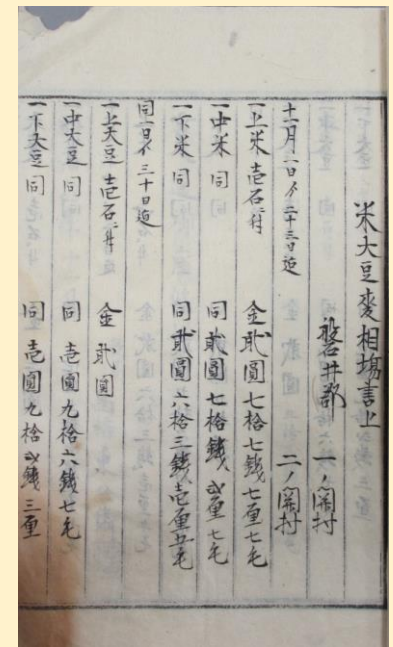 米大豆麥相場書上
磐井郡 一ノ關村
二ノ關村
十一月一日ゟ二十三日迠
一上米 壱石ニ付 金貮圓七拾七錢七厘七毛
一中米 同 同貮圓七拾錢弐厘七毛
一下米 同 同貮圓六拾三錢壱厘五毛
同一日ゟ三十日迠
一上大豆 壱石ニ付 金貮圓
一中大豆 同 同壱圓九拾六錢七毛
一下大豆 同 同壱圓九拾弐錢三厘